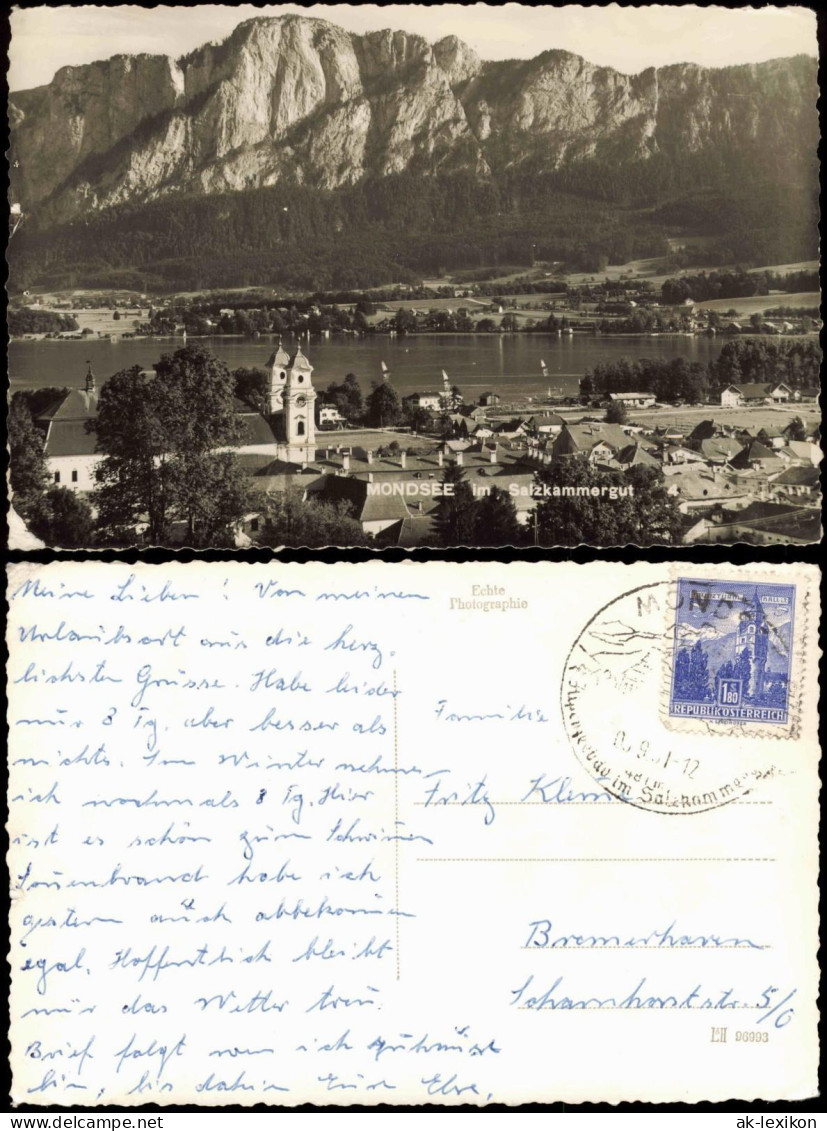 MONDSEE im Salzkammergut
Meine Lieben! Von meinen
Urlaubsort aus die herz-
lichsten Grüsse. Habe leider
nur 8 Tg. aber besser als
nichts. Im Winter nehme
ich nochmals 8 Tg. Hier
ist es schön zum Schwimen
Sonnenbrand habe ich
gestern auch abbekommen
egal. Hoffentlich bleibt
mir das Wetter treu.
Brief folgt wen ich zuhause
bin, bis dahin Eure Else.
Echte
Photographie
MONDSEE
9. 12
im Salzkammergut
1.80
REPUBLIK ÖSTERREICH
Familie
Fritz
Bremerhaven
Scharnhorststr. 5/0
96993
ak-lexikon.de